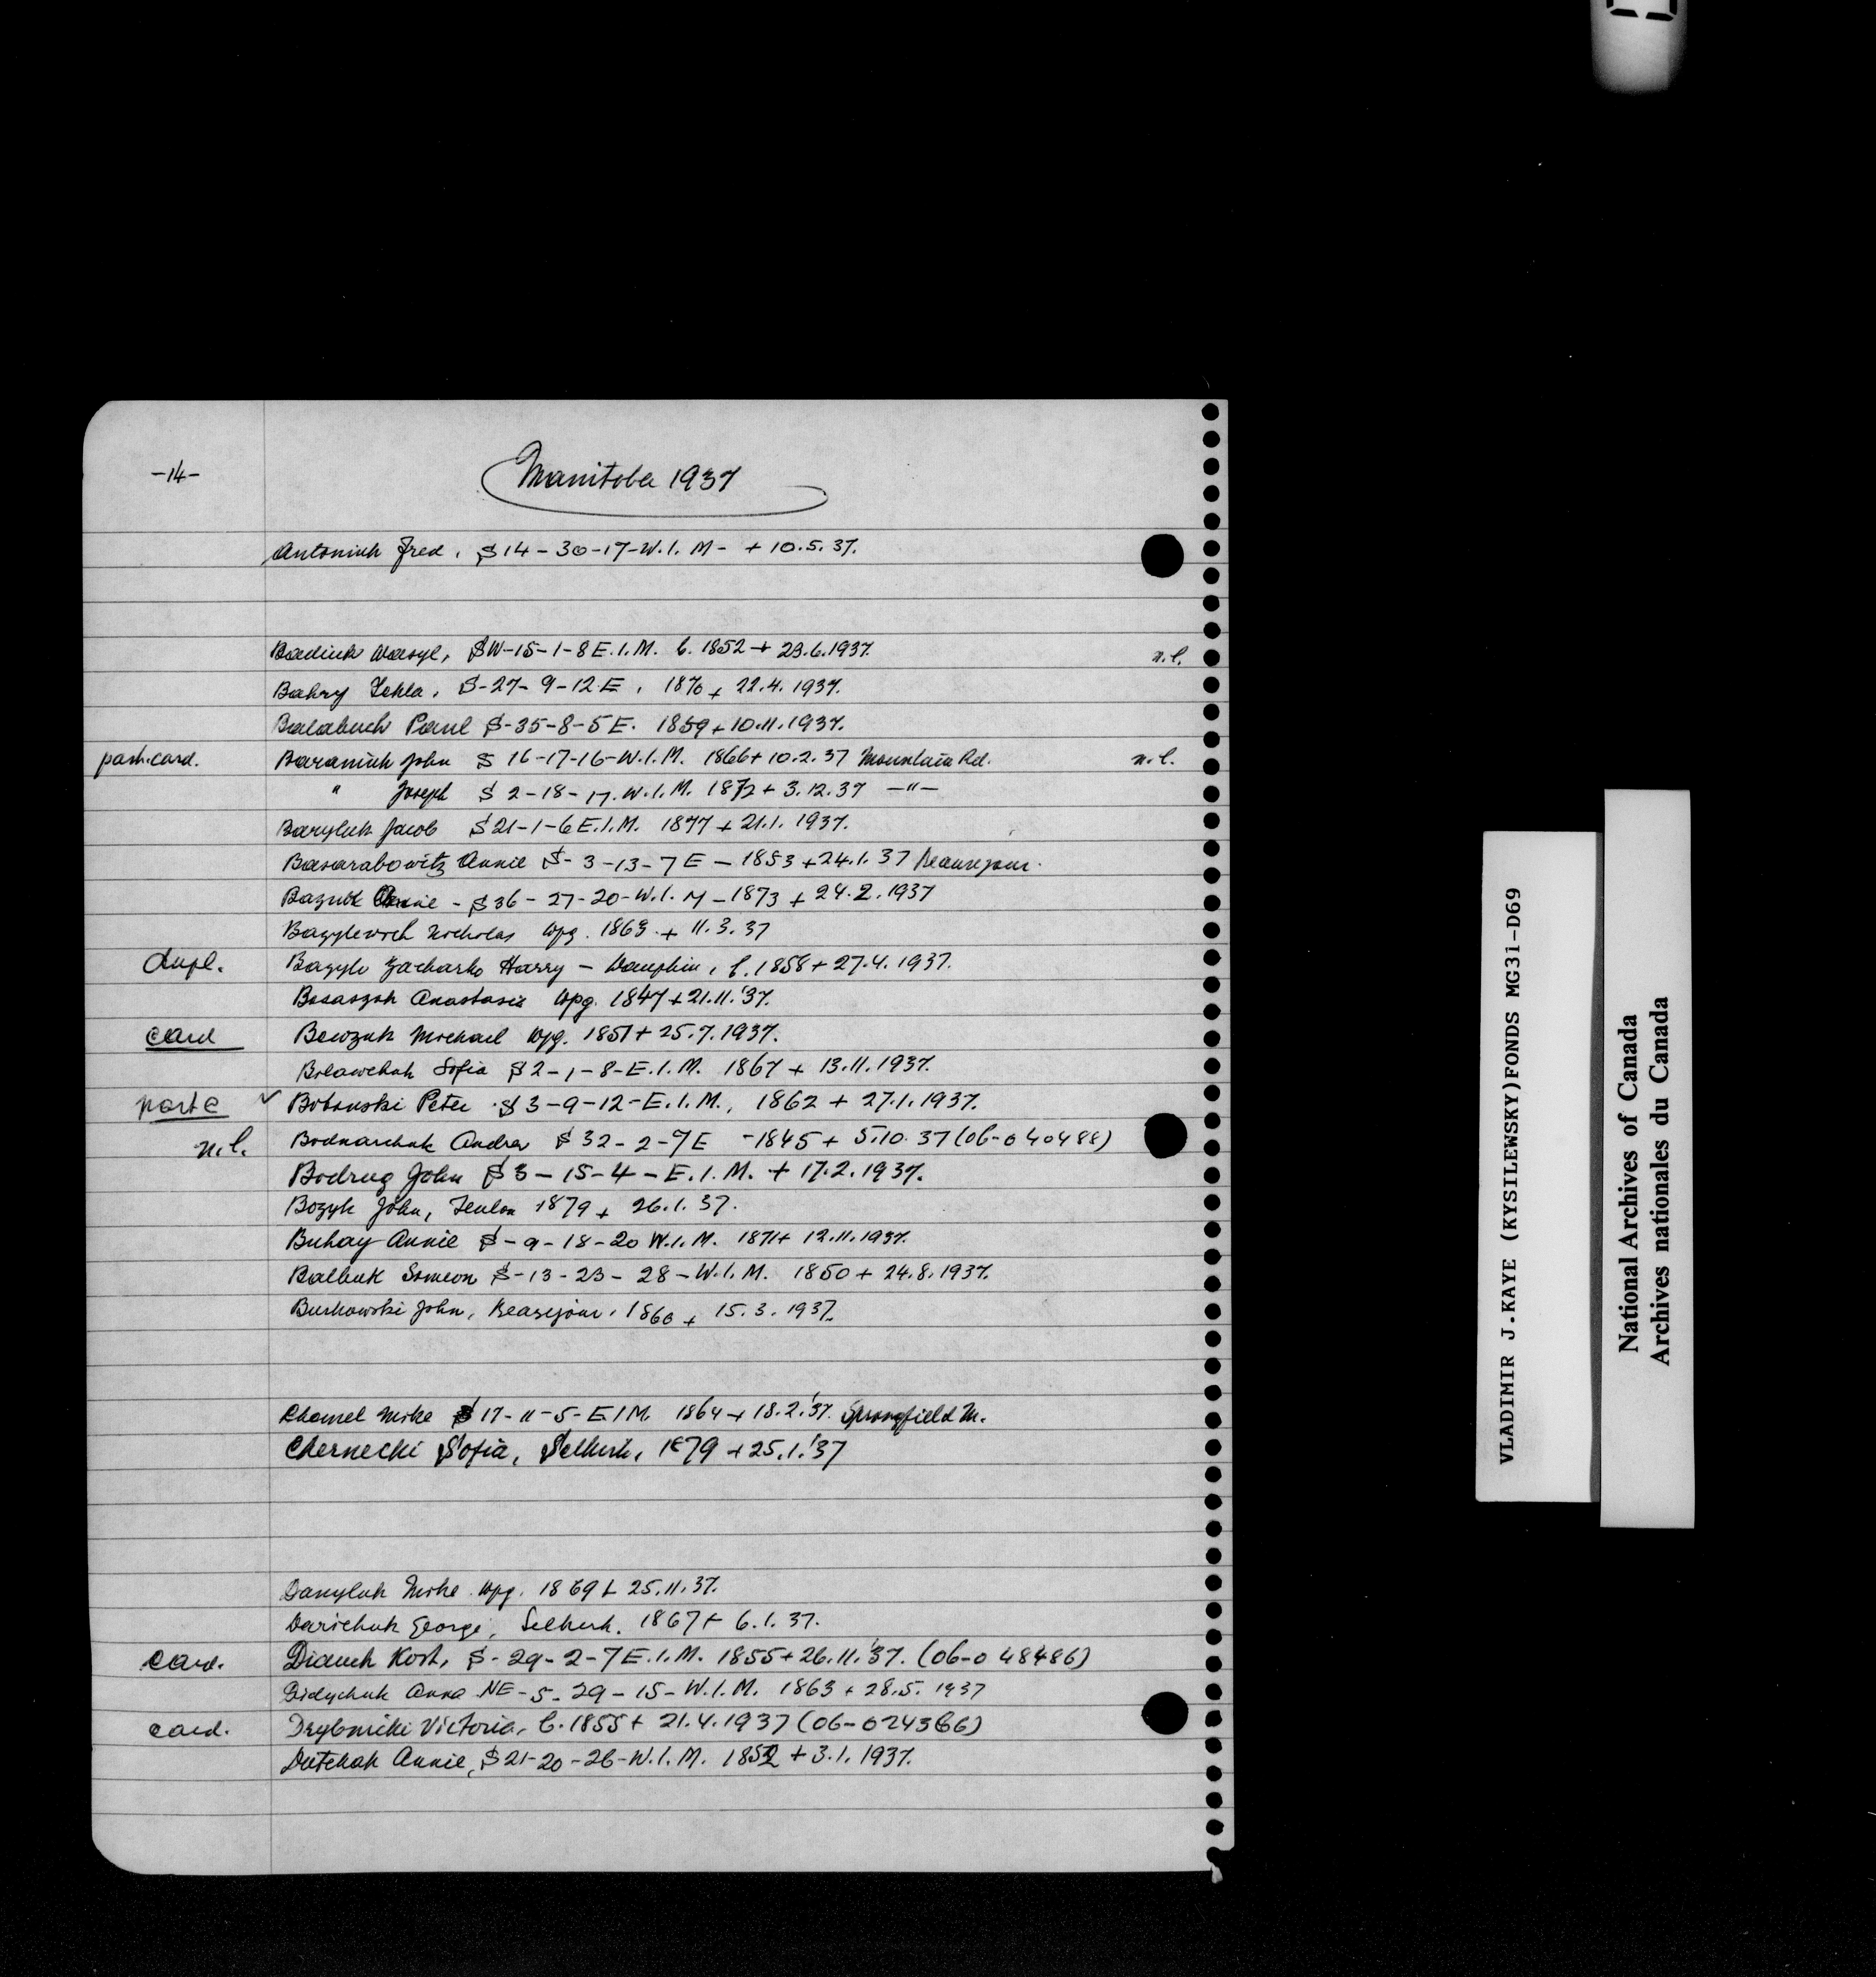 -14-
Manitoba 1937
Antoniuk Fred, S 14-30-17-W.1.M- + 10.5.37.
Badiuk Wasyl, SW-15-1-8 E.1.M. b. 1852 + 23.6.1937. n.l.
Bahry Tekla, S-27-9-12.E, 1870 + 22.4.1937.
Balabuch Paul S-35-8-5 E. 1859 + 10.11.1937.
Baraniuk John S 16-17-16-W.1.M. 1866 + 10.2.37 Mountain Rd. n.l.
" Joseph S 2-18-17.W.1.M. 1872 + 3.12.37 —"—
Baryluk Jacob S 21-1-6 E.1.M. 1877 + 21.1.1937.
Basarabowitz Annie S-3-13-7 E - 1853 + 24.1.37 Beausejour.
Baznik Annie - S 36-27-20-W.1.M - 1873 + 24.2.1937
Bazylewich Nicholas Wpg. 1863 + 11.3.37
dupl. Bazyk Zacharko Harry - Dauphin, b. 1858 + 27.4.1937.
Anastasia Wpg. 1847 + 21.11.'37.
card Bewzuk Michael Wpg. 1851 + 25.7.1937.
Bilawchuk Sofia S 2-1-8-E.1.M. 1867 + 13.11.1937.
✓ Bobinski Peter S 3-9-12-E.1.M., 1862 + 27.1.1937.
n.l. Bodnarchuk Andrew S 32-2-7 E - 1845 + 5.10.37 (06-040488)
Bodrug John S 3-15-4-E.1.M. + 17.2.1937.
Bozyk John, Teulon 1879 + 26.1.37.
Buhay Annie S-9-18-20 W.1.M. 1871 + 12.11.1937.
Balbuk Simeon S-13-23-28-W.1.M. 1850 + 24.8.1937.
Burkowski John, Beausejour, 1860 + 15.3.1937.
Chomel Mike S 17-11-5-E1M. 1864 + 18.2.'37. Springfield M.
Chernecki Sofia, Selkirk, 1879 + 25.1.'37
Danyluk Mike Wpg. 1869 + 25.11.37.
Darichuk George, Selkirk. 1867 + 6.1.37.
card. Diauck Kost, S-29-2-7 E.1.M. 1855 + 26.11.'37. (06-048486)
Didychuk Anna NE-5-29-15-W.1.M. 1863 + 28.5.1937
card. Victoria, b. 1855 + 21.4.1937 (06-024366)
Dutchak Annie, S 21-20-26-W.1.M. 1852 + 3.1.1937.
VLADIMIR J.KAYE (KYSILEWSKY)FONDS MG31-D69
National Archives of Canada
Archives nationales du Canada